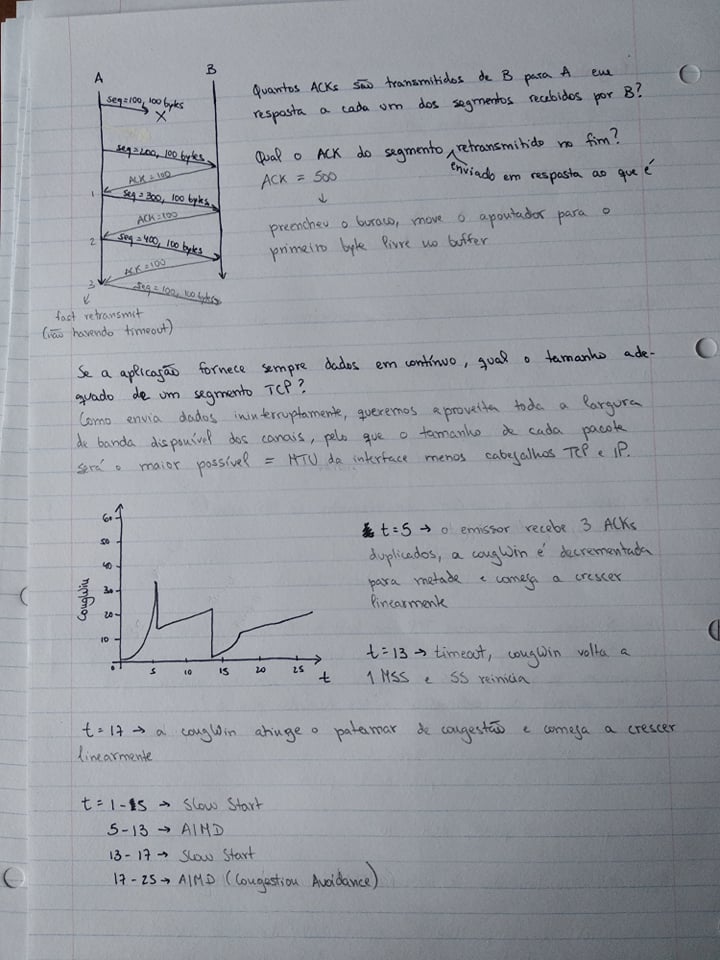 A
B
seq=100, 100 bytes
X
seq=200, 100 bytes
ACK=100
1
seq=300, 100 bytes
ACK=100
2
seq=400, 100 bytes
ACK=100
3
seq=100, 100 bytes
fast retransmit
(não havendo timeout)
Quantos ACKs são transmitidos de B para A em
resposta a cada um dos segmentos recebidos por B?
Qual o ACK do segmento retransmitido no fim?
enviado em resposta ao que é
ACK = 500
preencheu o buraco, move o apontador para o
primeiro byte livre no buffer
Se a aplicação fornece sempre dados em contínuo, qual o tamanho ade-
quado de um segmento TCP?
Como envia dados ininterruptamente, queremos aproveita toda a largura
de banda disponível dos canais, pelo que o tamanho de cada pacote
será o maior possível = MTU da interface menos cabeçalhos TCP e IP.
60
50
40
30
20
10
0
CongWin
5
10
15
20
25
t
t=5 → o emissor recebe 3 ACKs
duplicados, a congWin é decrementada
para metade e começa a crescer
linearmente
t=13 → timeout, congWin volta a
1 MSS e SS reinicia
t=17 → a congWin atinge o patamar de congestão e começa a crescer
linearmente
t=1-5 → Slow Start
5-13 → AIMD
13-17 → Slow Start
17-25 → AIMD (Congestion Avoidance)